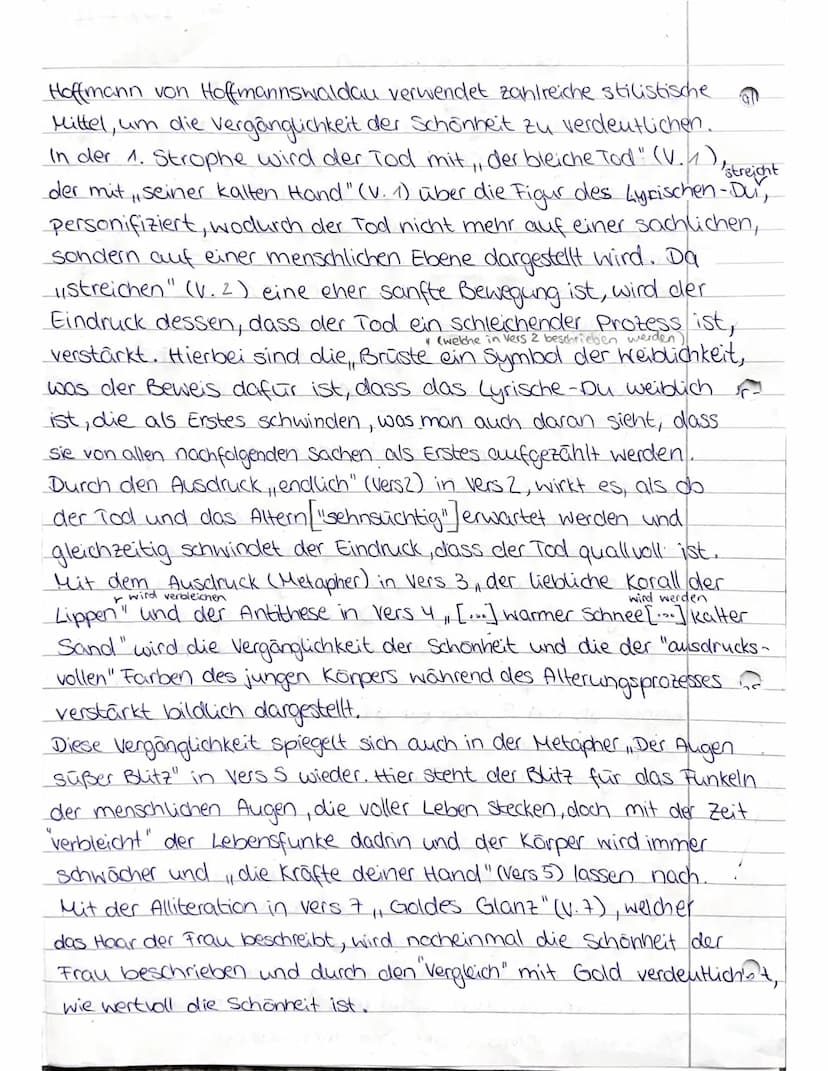 Hoffmann von Hoffmannswaldau verwendet zahlreiche stilistische
Mittel, um die Vergänglichkeit der Schönheit zu verdeutlichen.
In der 1. Strophe wird der Tod mit „der bleiche Tod" (V. 1),
streicht
der mit „seiner kalten Hand" (V. 1) über die Figur des Lyrischen-Du,
personifiziert, wodurch der Tod nicht mehr auf einer sachlichen,
sondern auf einer menschlichen Ebene dargestellt wird. Da
„streichen" (V. 2) eine eher sanfte Bewegung ist, wird der
Eindruck dessen, dass der Tod ein schleichender Prozess ist,
" (welche in Vers 2 beschrieben werden)
verstärkt. Hierbei sind die „Brüste ein Symbol der Weiblichkeit,
was der Beweis dafür ist, dass das Lyrische-Du weiblich
ist, die als Erstes schwinden, was man auch daran sieht, dass
sie von allen nachfolgenden Sachen als Erstes aufgezählt werden.
Durch den Ausdruck „endlich" (Vers 2) in Vers 2, wirkt es, als ob
der Tod und das Altern ["sehnsüchtig"] erwartet werden und
gleichzeitig schwindet der Eindruck, dass der Tod quallvoll ist.
Mit dem Ausdruck (Metapher) in Vers 3 „der liebliche Korall der
wird verbleichen wird werden
Lippen" und der Antithese in Vers 4 „[...] warmer Schnee [...] kalter
Sand" wird die Vergänglichkeit der Schönheit und die der "ausdrucks-
vollen" Farben des jungen Körpers während des Alterungsprozesses
verstärkt bildlich dargestellt.
Diese Vergänglichkeit spiegelt sich auch in der Metapher „Der Augen
süßer Blitz" in Vers 5 wieder. Hier steht der Blitz für das Funkeln
der menschlichen Augen, die voller Leben stecken, doch mit der Zeit
"verbleicht" der Lebensfunke dadrin und der Körper wird immer
schwächer und „die Kräfte deiner Hand" (Vers 5) lassen nach.
Mit der Alliteration in Vers 7 „Goldes Glanz" (V. 7), welcher
das Haar der Frau beschreibt, wird nocheinmal die Schönheit der
Frau beschrieben und durch den "Vergleich" mit Gold verdeutlicht,
wie wertvoll die Schönheit ist.